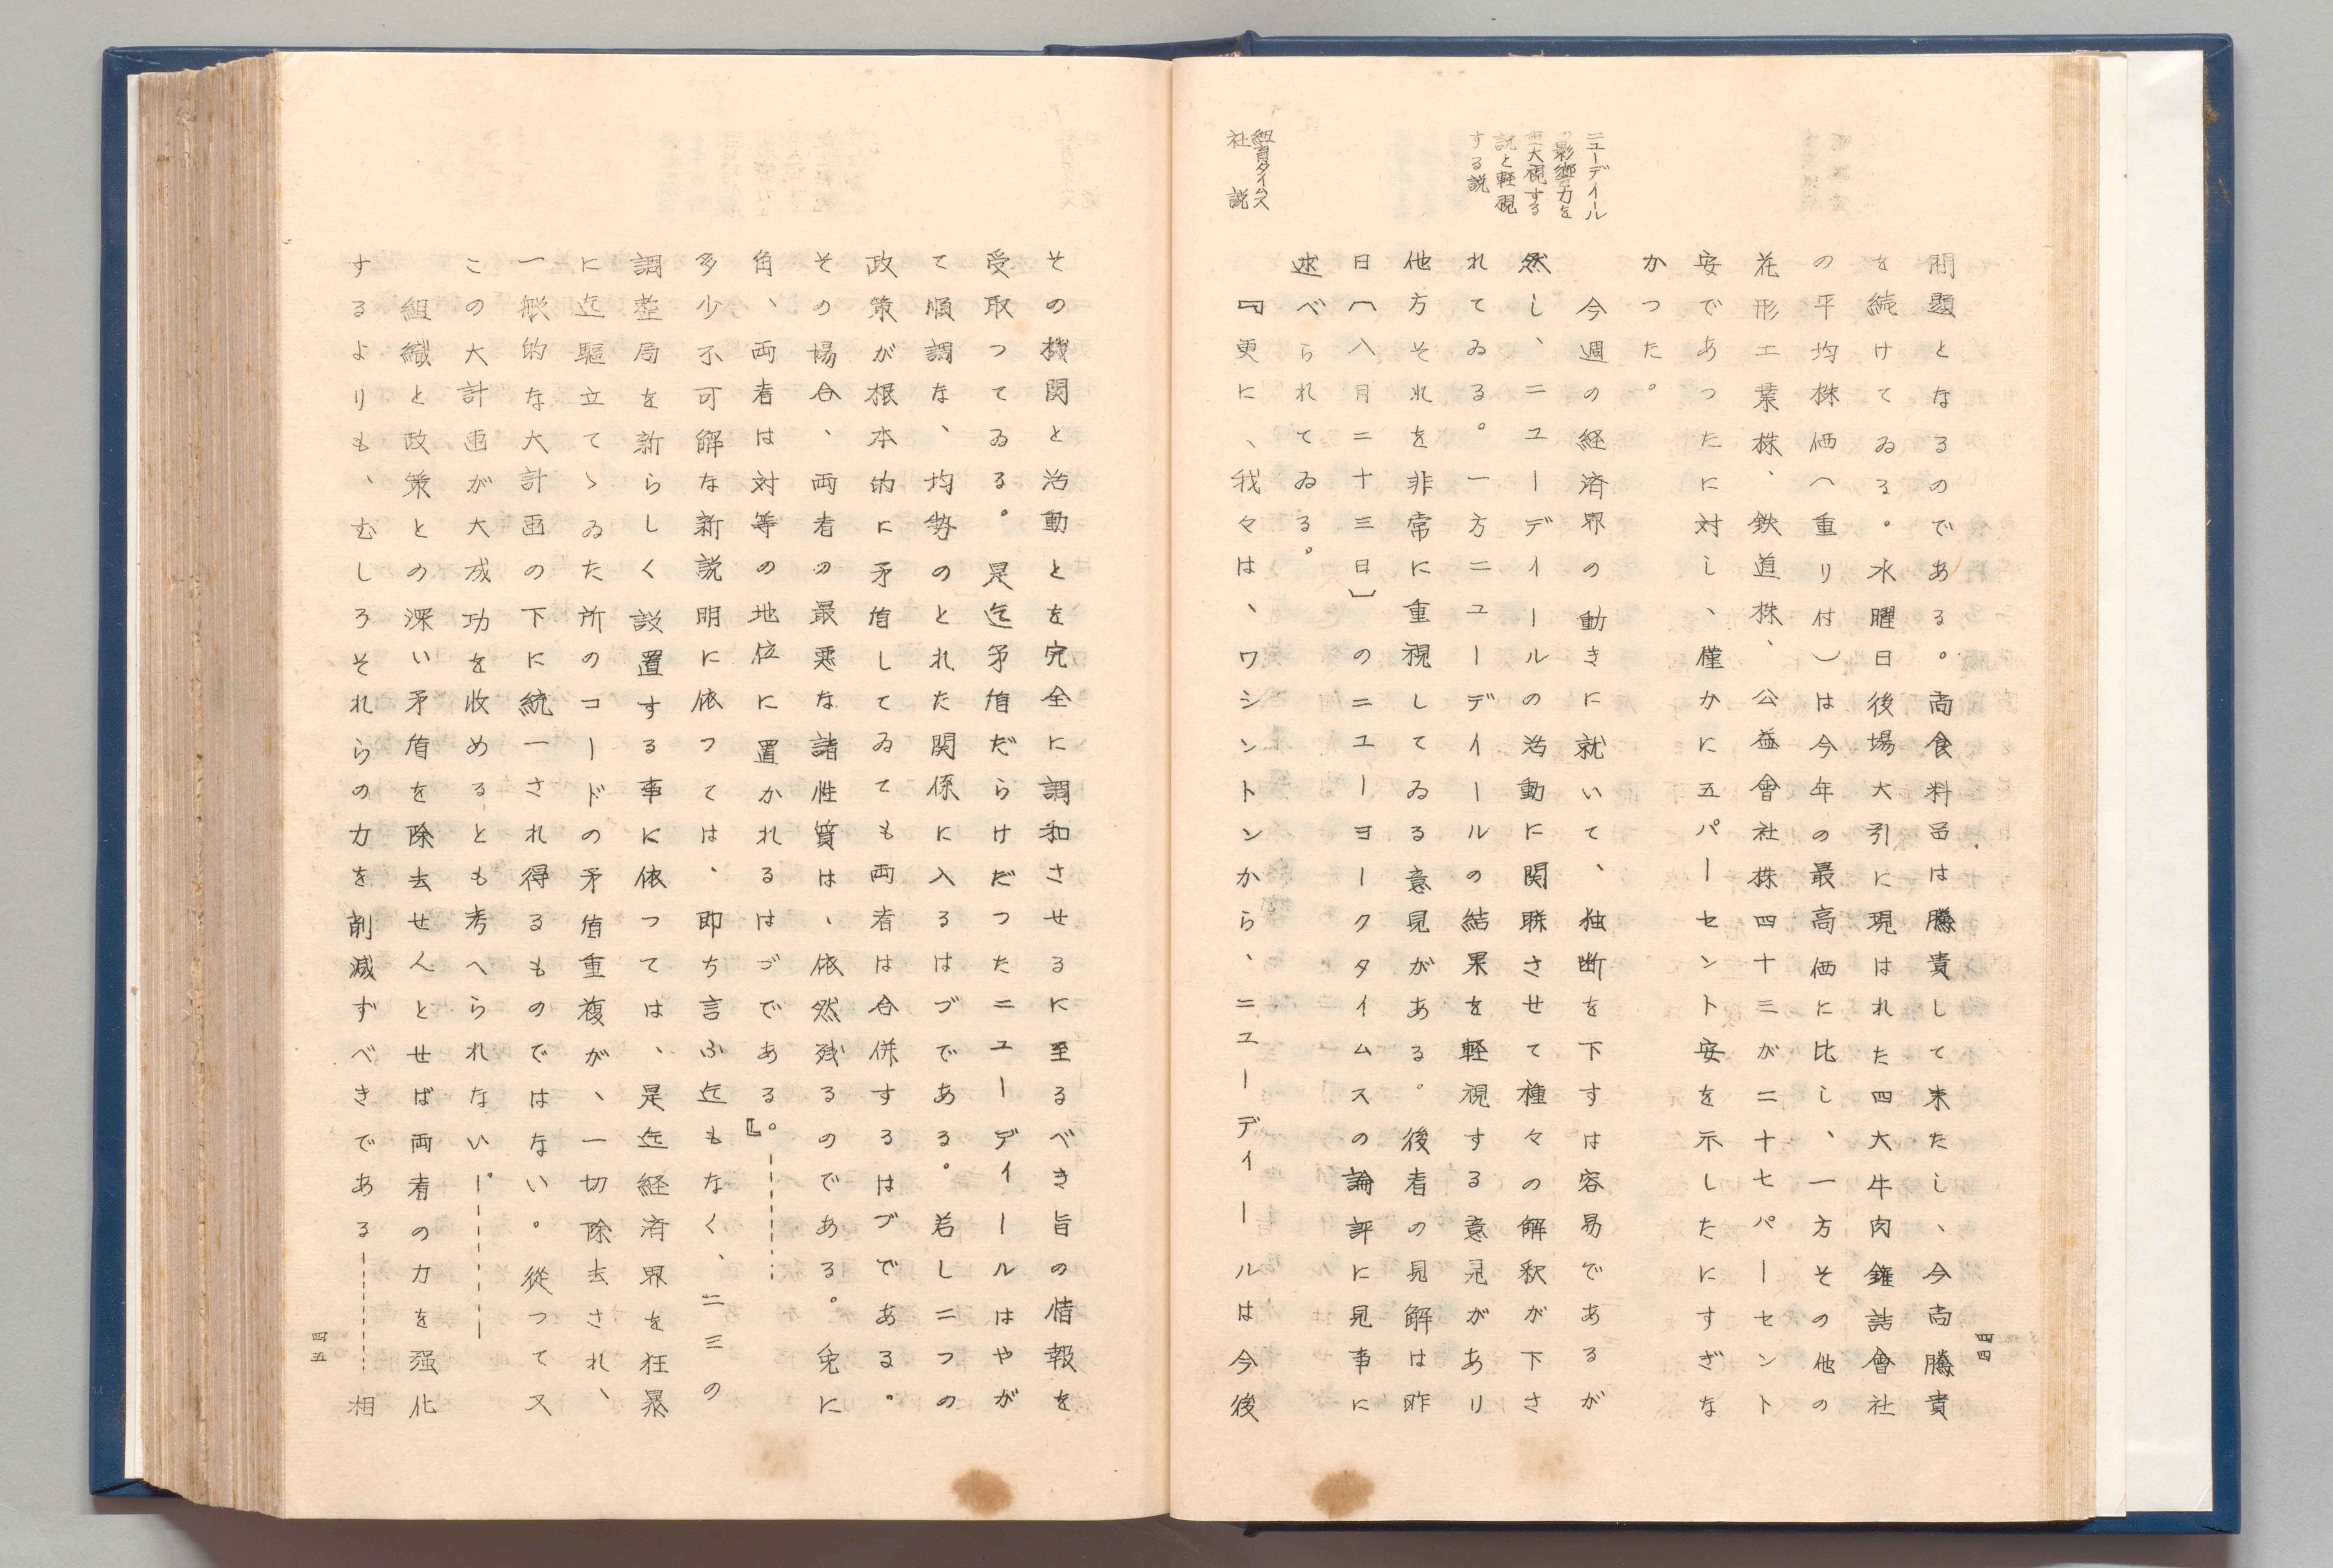 四四
問題となるのである。尚食料品は騰貴して来たし、今尚騰貴
を続けてゐる。水曜日後場大引に現はれた四大牛肉鑵詰會社
の平均株価(重リ付)は今年の最高価に比し、一方その他の
花形工業株、鉄道株、公益會社株四十三が二十七パーセント
安であつたに対し、僅かに五パーセント安を示したにすぎな
かつた。
ニューデイール
の影響力を
重大視する
説と軽視
する説
今週の経済界の動きに就いて、独断を下すは容易であるが
然し、ニユーデイールの活動に関聯させて種々の解釈が下さ
れてゐる。一方ニユーデイールの結果を軽視する意見があり
他方それを非常に重視してゐる意見がある。後者の見解は昨
日〔八月二十三日〕のニユーヨークタイムスの論評に見事に
述べられてゐる。
紐育タイムス
社説
『更に、我々は、ワシントンから、ニユーデイールは今後
その機関と活動とを完全に調和させるに至るべき旨の情報を
受取つてゐる。是迄矛盾だらけだつたニユーデイールはやが
て順調な、均勢のとれた関係に入るはづである。若し二つの
政策が根本的に矛盾してゐても両者は合併するはづである。
その場合、両者の最悪な諸性質は、依然残るのである。兔に
角、両者は対等の地位に置かれるはづである。』------
多少不可解な新説明に依つては、即ち言ふ迄もなく、二三の
調整局を新らしく設置する事に依つては、是迄経済界を狂暴
に迄駆立てゝゐた所のコードの矛盾重複が、一切除去され、
一般的な大計画の下に統一され得るものではない。從つて又
この大計画が大成功を收めるとも考へられない。------
組織と政策との深い矛盾を除去せんとせば両者の力を强化
するよりも、むしろそれらの力を削減ずべきである------相
四五